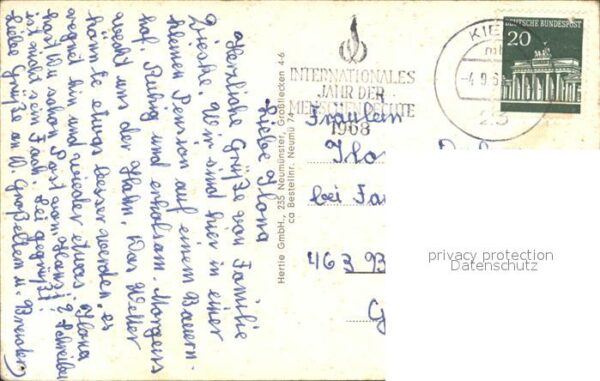 Liebe Ilona
Herzliche Grüße von Familie
Dieske. Wir sind hier in einer
kleinen Pension auf einem Bauern-
hof. Ruhig und erholsam. Morgens
weckt uns der Hahn. Das Wetter
könnte etwas besser werden, es
regnet hin und wieder etwas. Ilona
hast Du schon Post von Hans? Schreiben
ist nicht sein Fach. Sei gegrüßt
Liebe Grüße an d. Großeltern u. Bruder
Hertie GmbH., 235 Neumünster, Großflecken 4-6
ca Bestellnr. Neumü 74
INTERNATIONALES
JAHR DER
MENSCHENRECHTE
1968
KIE
-4.9.6
23
DEUTSCHE BUNDESPOST
20
Fräulein
Ilo
bei Fa
463 93
G
privacy protection
Datenschutz